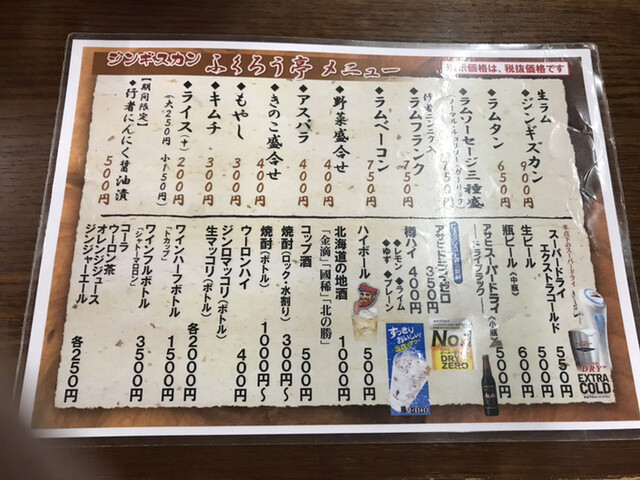 ジンギスカン ふくろう亭 メニュー
価格は、税抜価格です
生ラム
◆ジンギスカン 900円
◆ラムタン 650円
◆ラムソーセージ三種盛 750円
行者ニンニク入
◆ラムフランク 750円
◆ラムベーコン 750円
◆野菜盛合せ 400円
◆アスパラ 400円
◆きのこ盛合せ 400円
◆もやし 300円
◆キムチ 300円
◆ライス(中) 200円
(大250円 小150円)
【期間限定】
◆行者にんにく醤油漬 500円
氷点下のスーパードライ
スーパードライ
エクストラコールド 550円
生ビール 600円
瓶ビール(中瓶) 600円
アサヒスーパードライ(小瓶)
―ドライブラック― 500円
アサヒドライゼロ 350円
樽ハイ 400円
◆レモン ◆ライム
◆ゆず ◆プレーン
ハイボール 500円
北海道の地酒 1000円
「金滴」「國稀」「北の勝」
コップ酒 500円
焼酎(ロック・水割り) 300円~
焼酎(ボトル) 1000円~
ウーロンハイ 400円
ジンロマッコリ(ボトル) 1000円
生マッコリ(ボトル) 2000円
ワインハーフボトル 1500円~
(トカップ)
ワインフルボトル 3500円~
(シャトーマロン)
コーラ
ウーロン茶
オレンジジュース
ジンジャーエール 各250円
すっきり
おいしい!
No.1
DRY ZERO
"DRY"
EXTRA
COLD